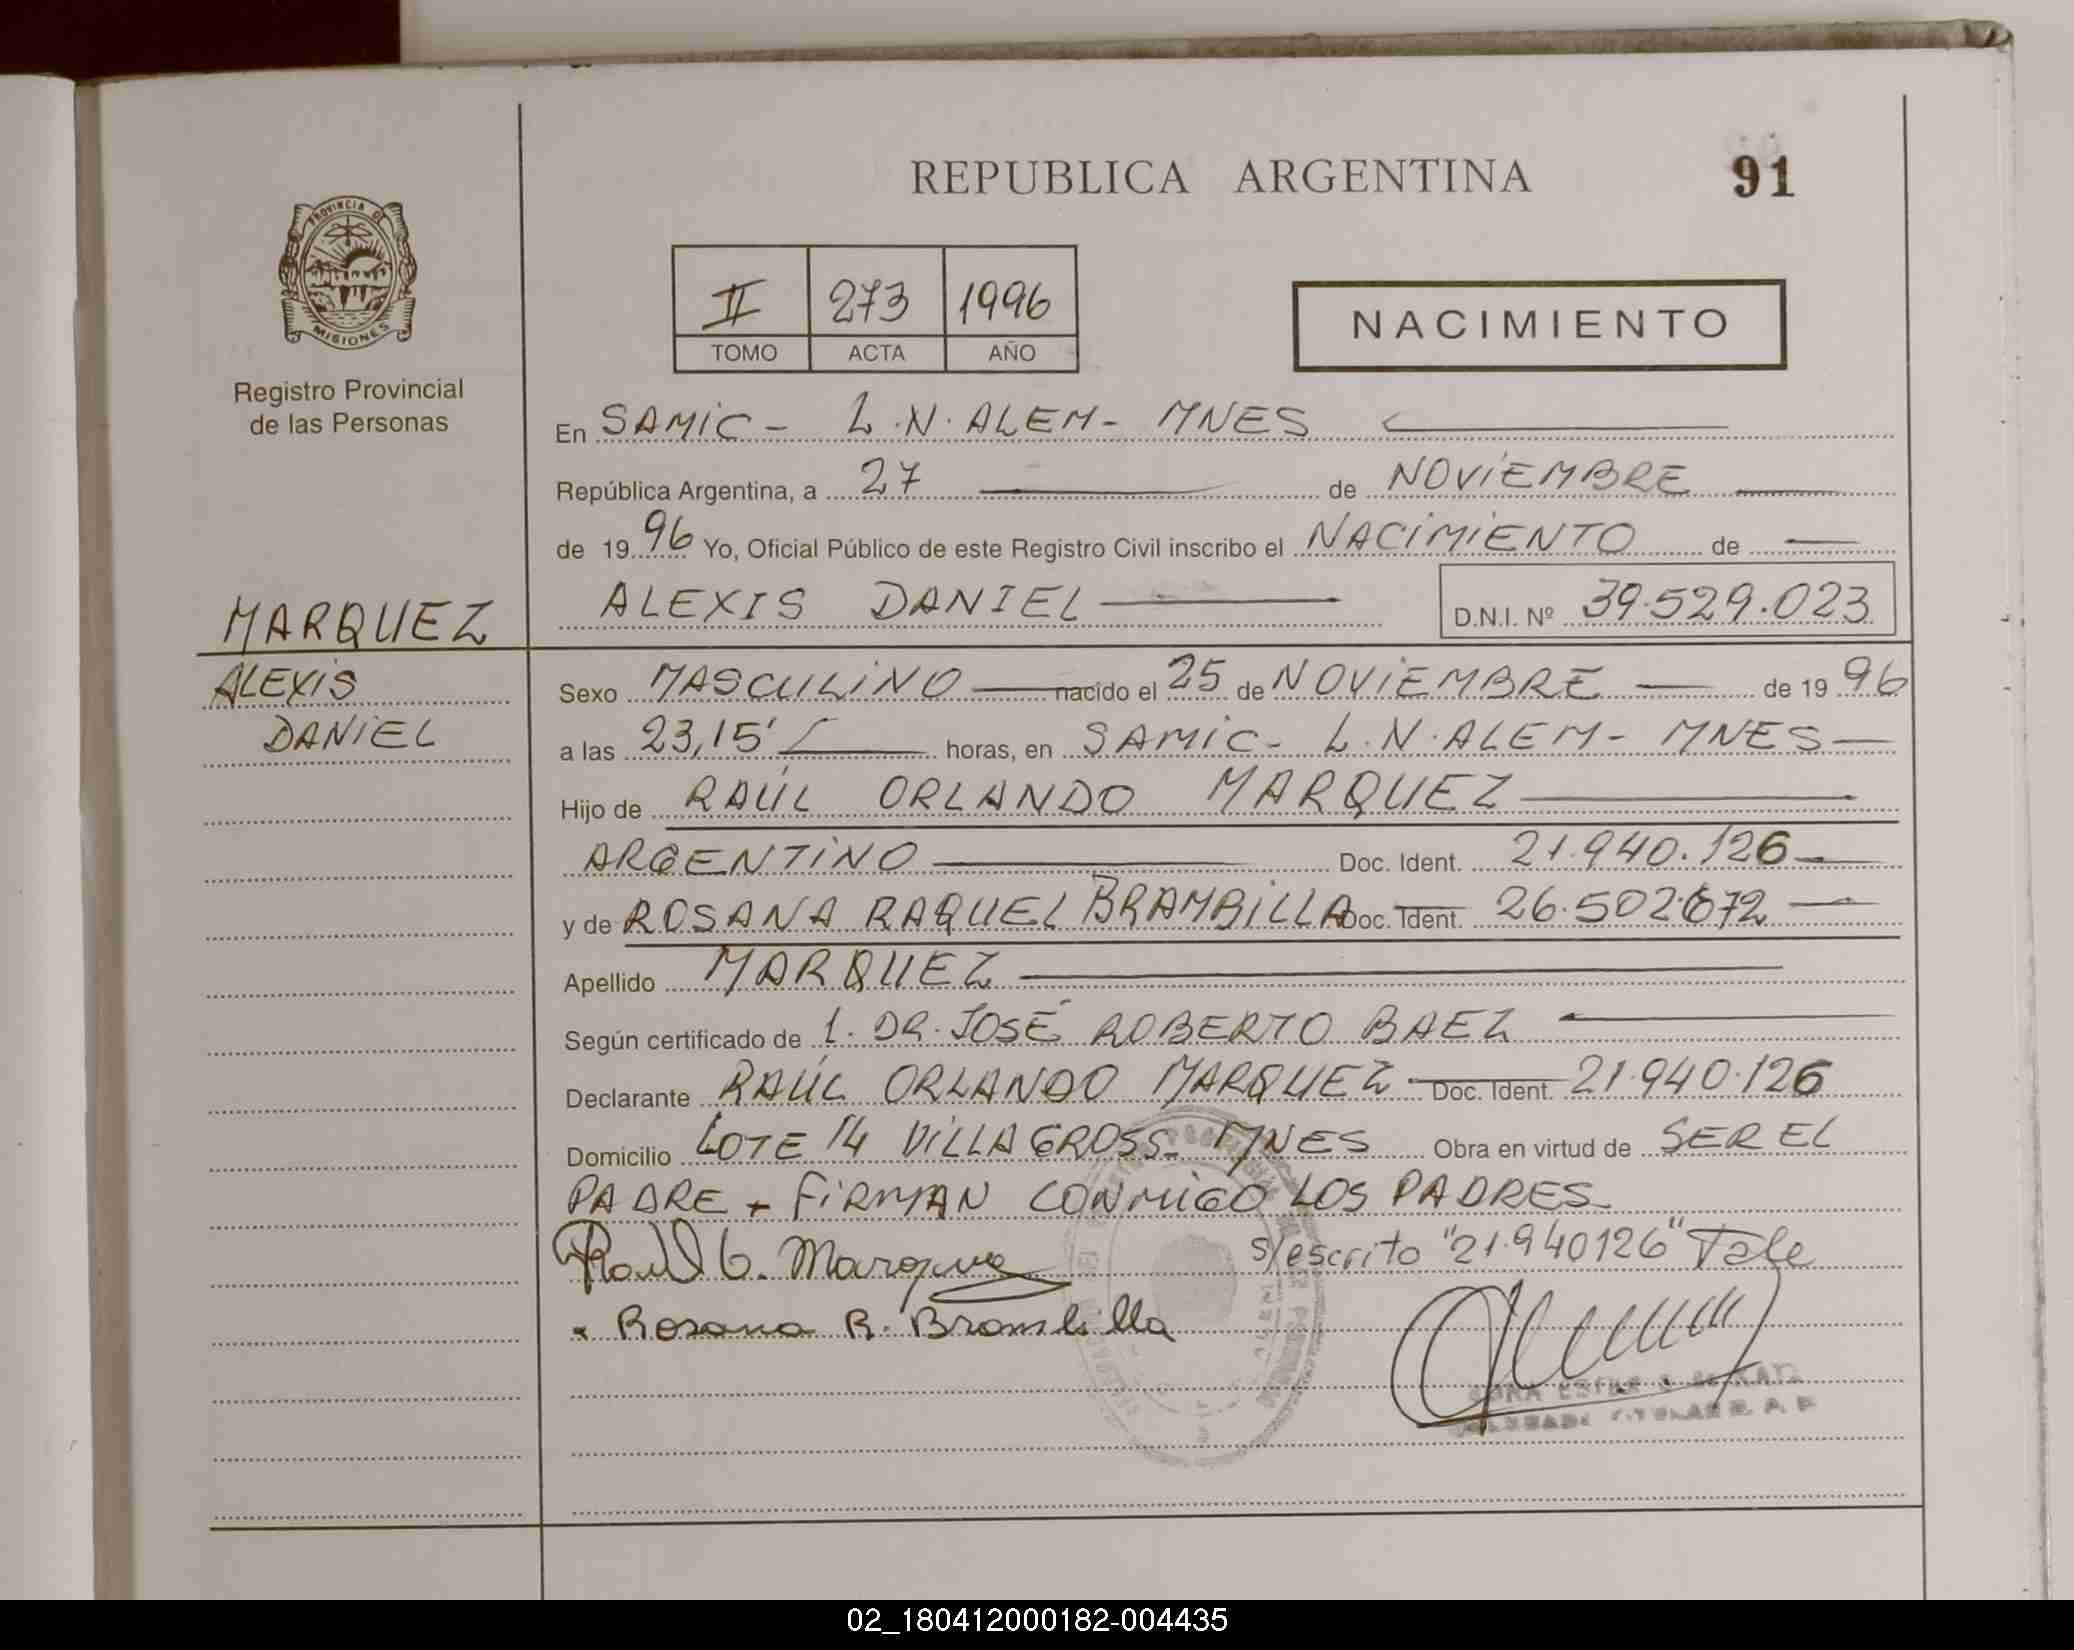 REPUBLICA ARGENTINA
91
PROVINCIA DE
MISIONES
Registro Provincial
de las Personas
II 273 1996
TOMO ACTA AÑO
NACIMIENTO
En SAMIC - L.N. ALEM - MNES
República Argentina, a 27 de NOVIEMBRE
de 1996 Yo, Oficial Público de este Registro Civil inscribo el NACIMIENTO de
ALEXIS DANIEL D.N.I. Nº 39.529.023
MARQUEZ
ALEXIS
DANIEL
Sexo MASCULINO nacido el 25 de NOVIEMBRE de 1996
a las 23,15' horas, en SAMIC - L.N. ALEM - MNES
Hijo de RAÚL ORLANDO MARQUEZ
ARGENTINO Doc. Ident. 21.940.126
y de ROSANA RAQUEL BRAMBILLA Doc. Ident. 26.502.672
Apellido MARQUEZ
Según certificado de 1. DR. JOSÉ ROBERTO BAEZ
Declarante RAÚL ORLANDO MARQUEZ Doc. Ident. 21.940.126
Domicilio LOTE 14 VILLAGROSS - MNES Obra en virtud de SER EL
PADRE - FIRMAN CONMIGO LOS PADRES -
Raul O. Marquez s/escrito "21.940126" Vale
Rosana R. Brambilla
02_180412000182-004435